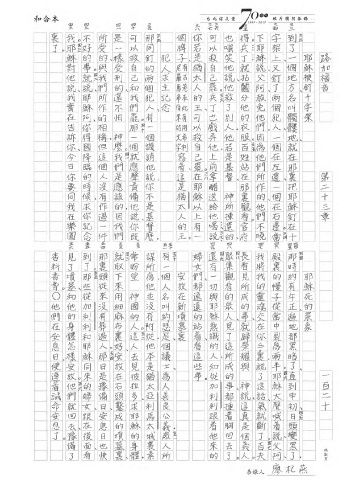 和合本
70
路加福音
第二十三章
一百二十
耶穌被釘十字架
到了一個地方名叫髑髏地就在那裏把耶穌釘在十
字架上又釘了兩個犯人一個在左邊一個在右邊當
下耶穌說父阿赦免他們因為他們所作的他們不曉
得兵丁就拈鬮分他的衣服百姓站在那裏觀看官府
也嗤笑他說他救了別人他若是基督　神所揀選的
可以救自己罷兵丁也戲弄他上前拿醋送給他喝說
你若是猶太人的王可以救自己罷在耶穌以上有一
個牌子寫著這是猶太人的王
犯人求主記念
那同釘的兩個犯人有一個譏誚他說你不是基督麼
可以救自己和我們罷那一個就應聲責備他說你既
是一樣受刑的還不怕　神麼我們是應該的因我們
所受的與我們所作的相稱但這個人沒有作過一件
不好的事就說耶穌阿你得國降臨的時候求你記念
我耶穌對他說我實在告訴你今日你要同我在樂園
裏了
耶穌死的景象
那時約有午正遍地都黑暗了直到申初日頭變黑了
殿裏的幔子從當中裂為兩半耶穌大聲喊著說父阿
我將我的靈魂交在你手裏說了這話氣就斷了百夫
長看見所成的事就歸榮耀與　神說這真是個義人
聚集觀看的眾人見了這所成的事都捶著胸回去了
還有一切與耶穌熟識的人和從加利利跟著他來的
婦女們都遠遠的站著看這些事
安放在新墳墓裏
有一個人名叫約瑟是個議士為人善良公義眾人所
謀所為他並沒有附從他本是猶太亞利馬太城裏素
常盼望　神國的人這人去見彼拉多求耶穌的身體
就取下來用細麻布裹好安放在石頭鑿成的墳墓裏
那裏頭從來沒有葬過人那日是預備日安息日也快
到了那些從加利利和耶穌同來的婦女跟在後面看
見了墳墓和他的身體怎樣安放他們就回去預備了
香料香膏○他們在安息日便遵著誡命安息了